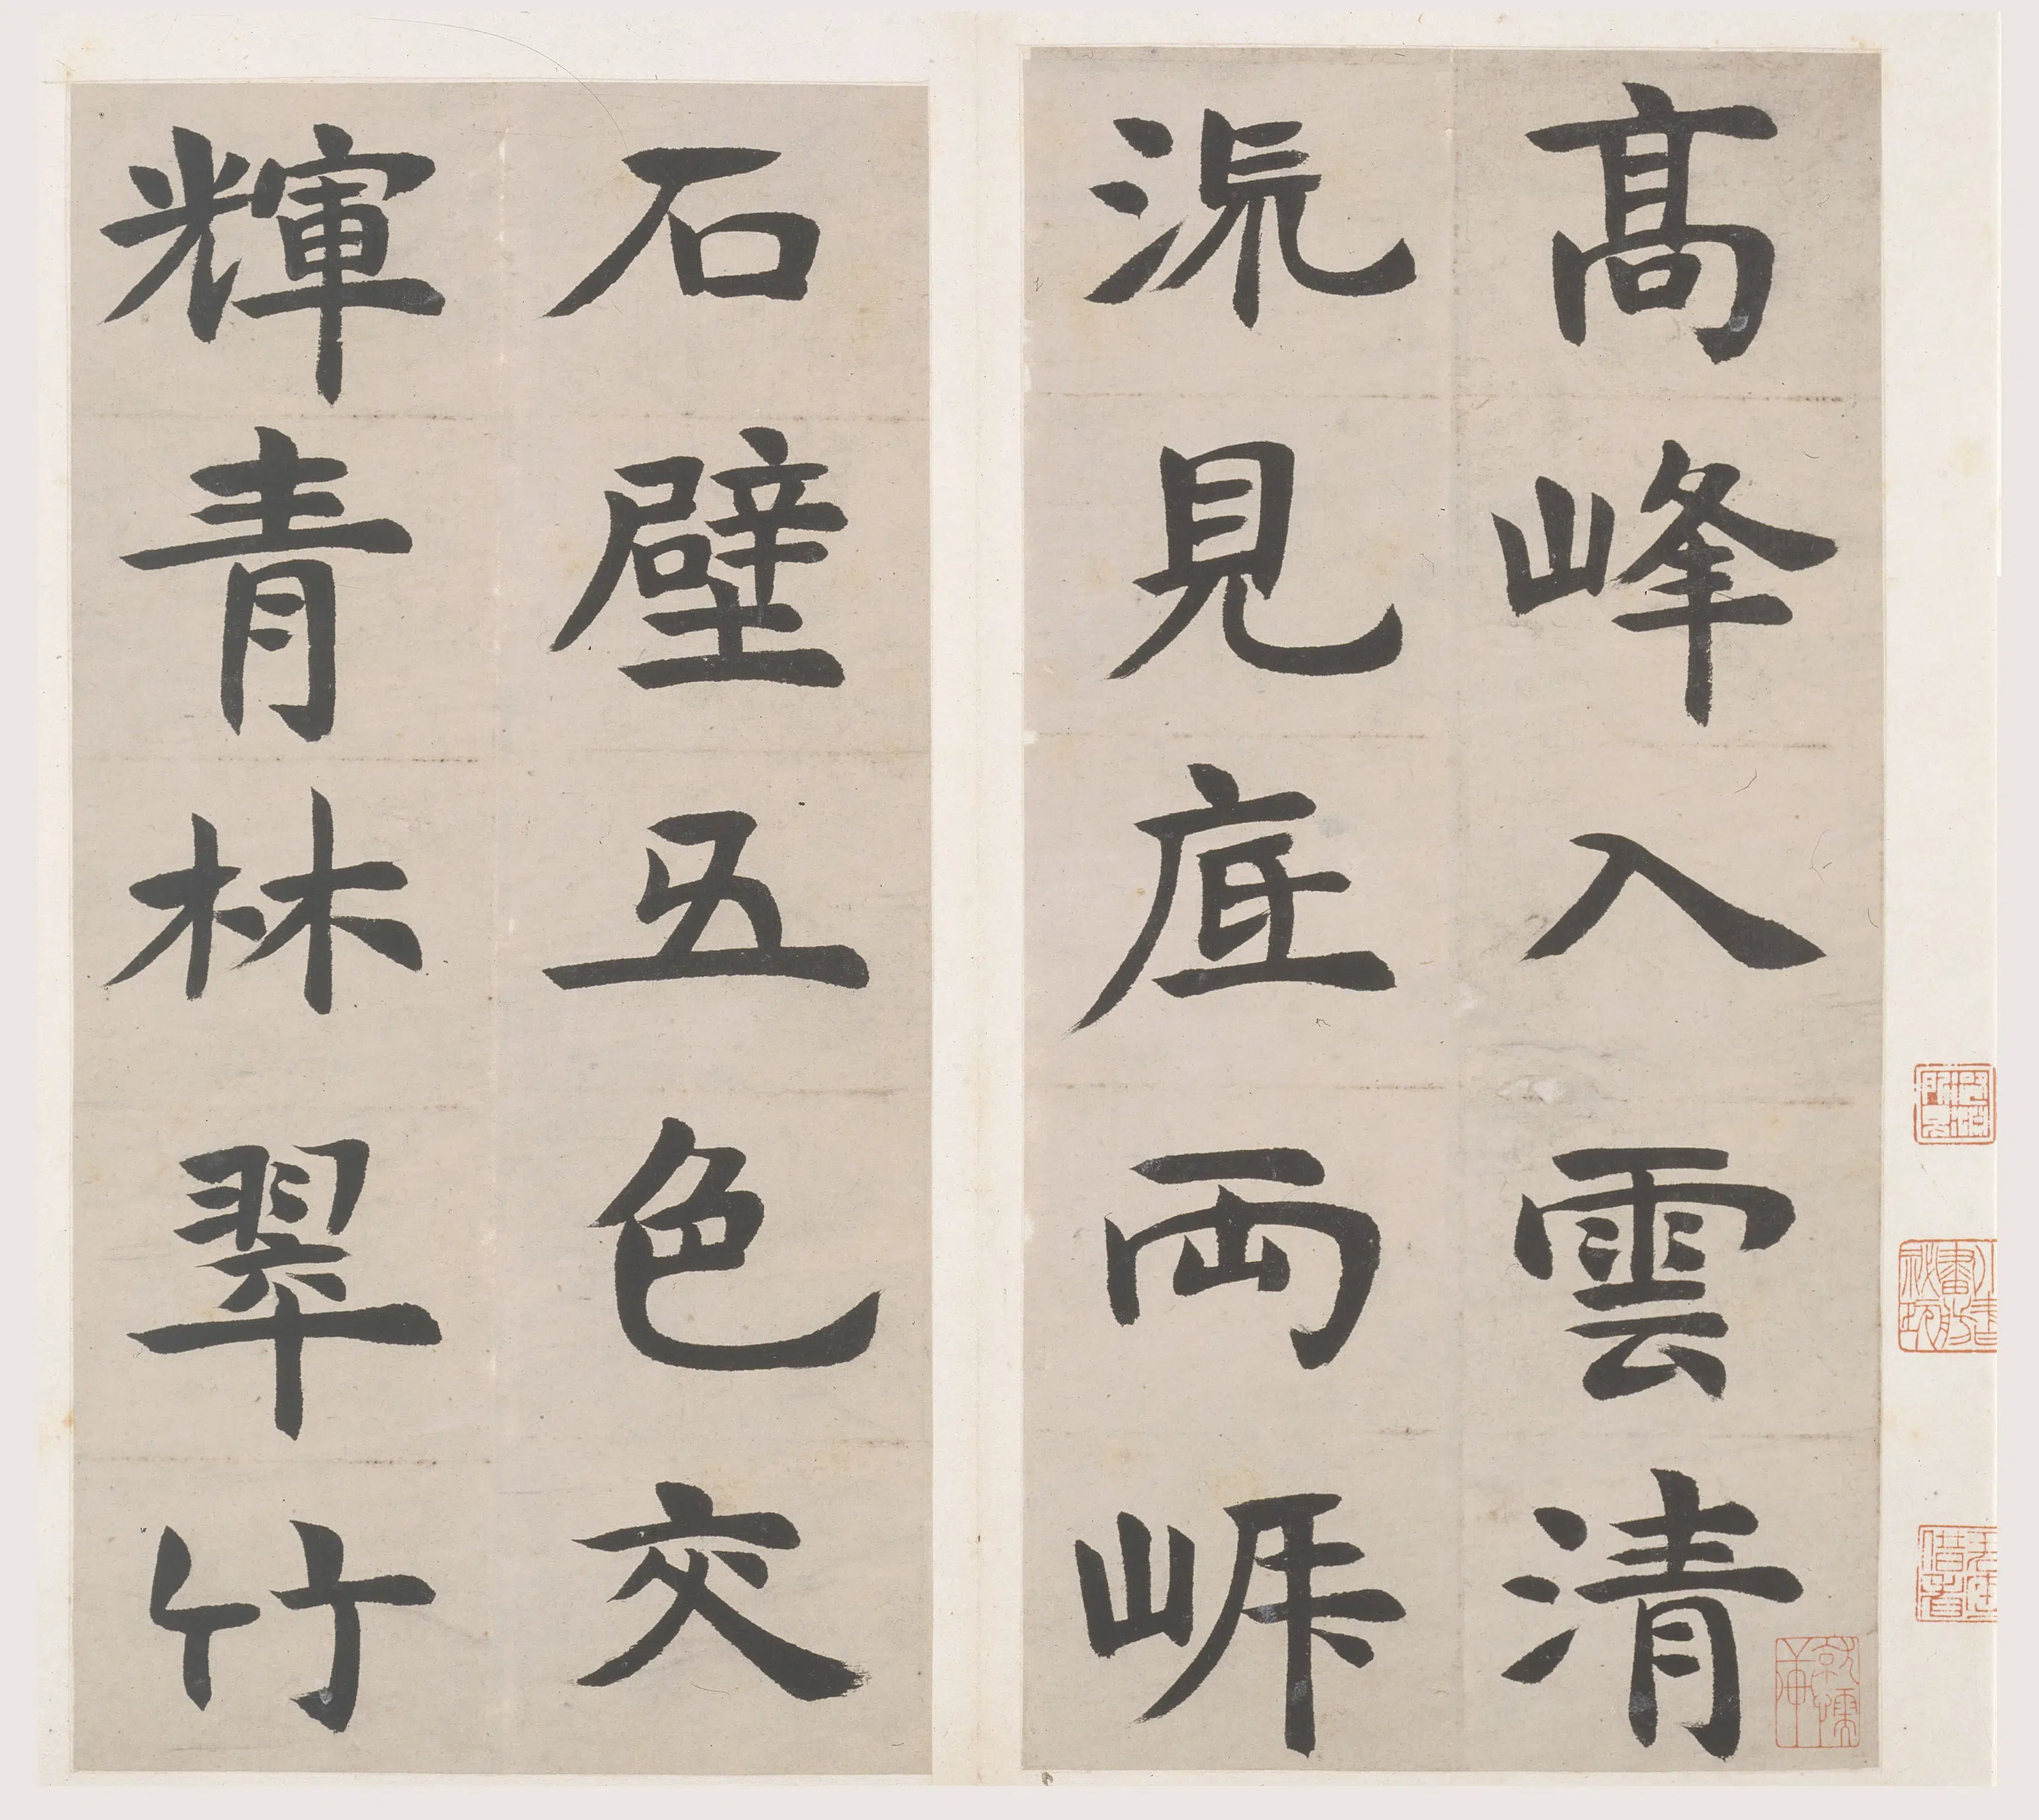 髙峰入雲清
流見底兩岸
石壁五色交
輝青林翠竹